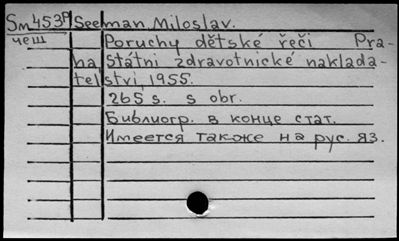 Sm453p Seeman Miloslav.
чеш Poruchy dětské řeči Pra-
ha, Státní zdravotnické naklada-
telství, 1955.
265 s. s obr.
Библиогр. в конце стат.
Имеется также на рус. яз.